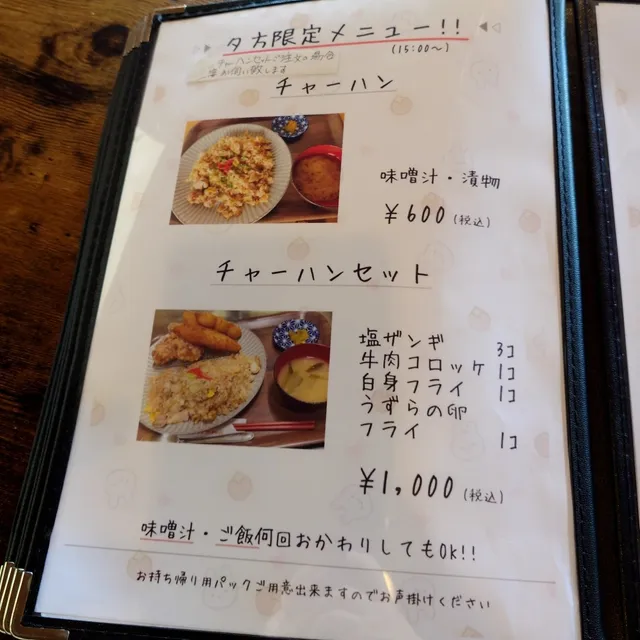 夕方限定メニュー!!
(15:00〜)
チャーハンセットご注文の場合
お伺い致します
チャーハン
味噌汁・漬物
¥600(税込)
チャーハンセット
塩ザンギ 3コ
牛肉コロッケ 1コ
白身フライ 1コ
うずらの卵
フライ 1コ
¥1,000(税込)
味噌汁・ご飯何回おかわりしてもOK!!
お持ち帰り用パックご用意出来ますのでお声掛けください